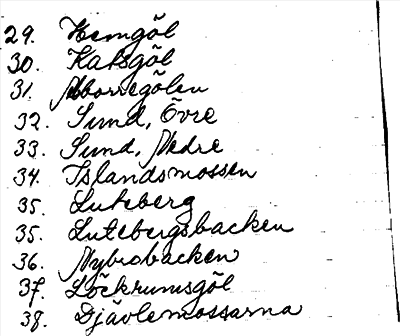 29. Hemgöl
30. Kalsgöl
31. Abborregölen
32. Sund, Övre
33. Sund, Nedre
34. Islandsmossen
35. Luteberg
35. Lutebergsbacken
36. Nybrobacken
37. Löckrumsgöl
38. Djävlemossarna